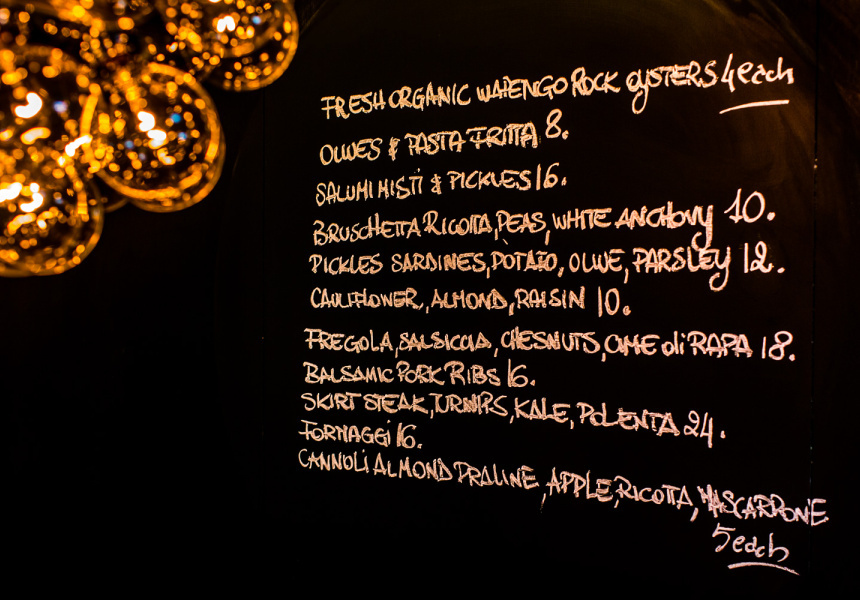 FRESH ORGANIC WAPENGO ROCK OYSTERS 4 each
OLIVES & PASTA FRITTA 8.
SALUMI MISTI & PICKLES 16.
BRUSCHETTA RICOTTA, PEAS, WHITE ANCHOVY 10.
PICKLES SARDINES, POTATO, OLIVE, PARSLEY 12.
CAULIFLOWER, ALMOND, RAISIN 10.
FREGOLA, SALSICCIA, CHESNUTS, CIME di RAPA 18.
BALSAMIC PORK RIBS 16.
SKIRT STEAK, TURNIPS, KALE, POLENTA 24.
FORMAGGI 16.
CANNOLI ALMOND PRALINE, APPLE, RICOTTA, MASCARPONE
5 each